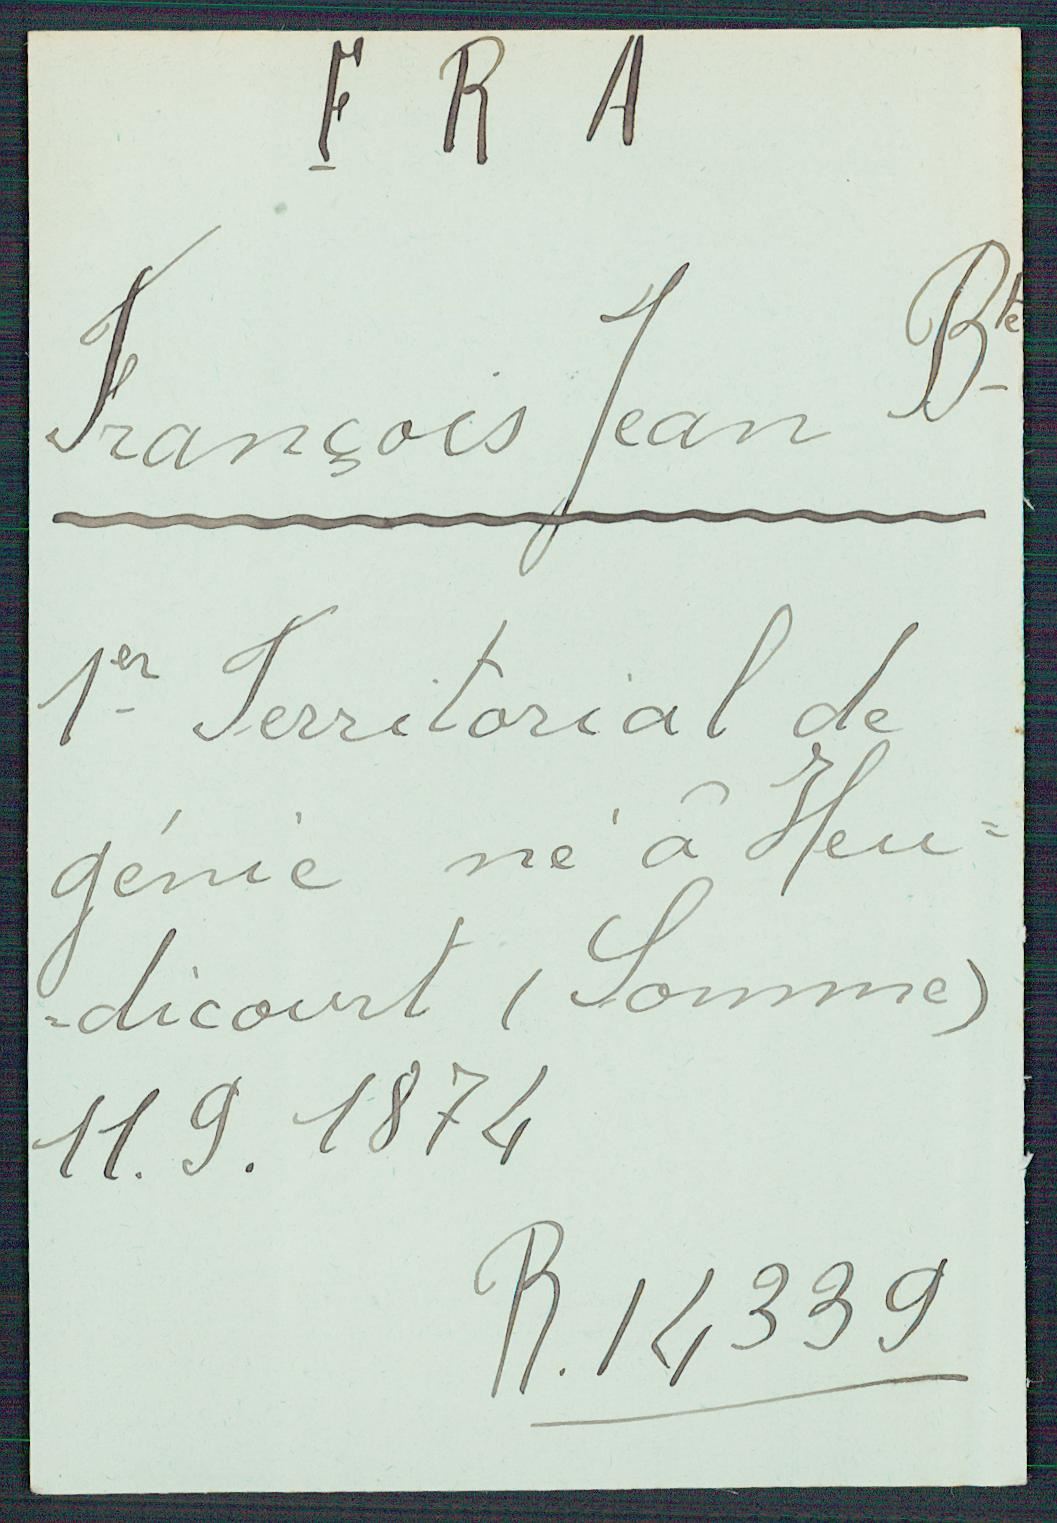 F R A
François Jean Bte
1er Territorial de
génie né à Heu=
=dicourt (Somme)
11.9.1874
R.14339